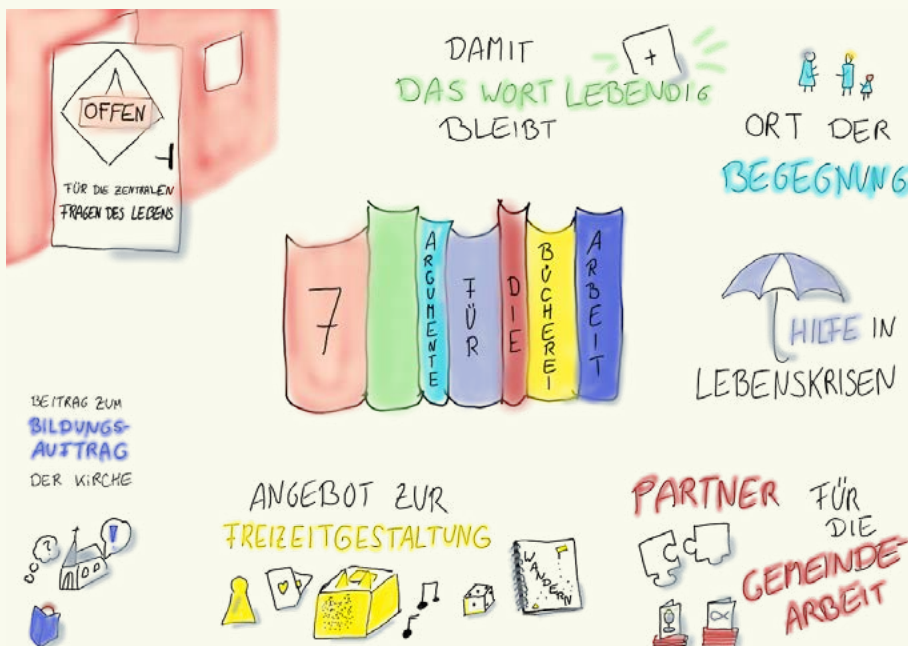 OFFEN
FÜR DIE ZENTRALEN
FRAGEN DES LEBENS
DAMIT
DAS WORT LEBENDIG
BLEIBT
ORT DER
BEGEGNUNG
7
ARGUMENTE
FÜR
DIE
BÜCHEREI
ARBEIT
HILFE IN
LEBENSKRISEN
BEITRAG ZUM
BILDUNGS-
AUFTRAG
DER KIRCHE
ANGEBOT ZUR
FREIZEITGESTALTUNG
WANDERN
PARTNER FÜR
DIE
GEMEINDE-
ARBEIT